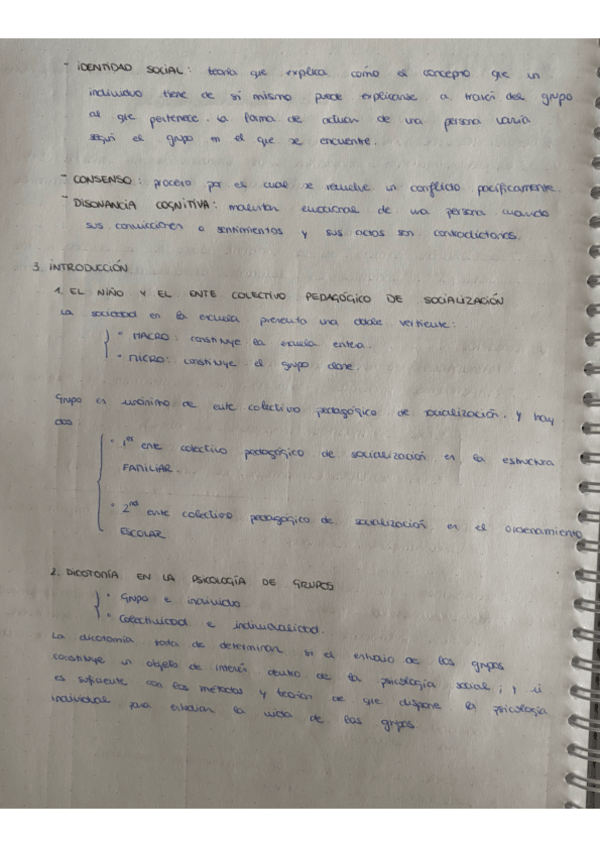 - IDENTIDAD SOCIAL: teoría que explica cómo el concepto que un
individuo tiene de sí mismo puede explicarse a través del grupo
al que pertenece. La forma de actuar de una persona varía
según el grupo en el que se encuentre.
- CONSENSO: proceso por el cual se resuelve un conflicto pacíficamente.
- DISONANCIA COGNITIVA: malestar emocional de una persona cuando
sus convicciones o sentimientos y sus actos son contradictorios.
3. INTRODUCCIÓN
1. EL NIÑO Y EL ENTE COLECTIVO PEDAGÓGICO DE SOCIALIZACIÓN
La sociedad en la escuela presenta una doble vertiente:
• MACRO: constituye la escuela entera.
• MICRO: constituye el grupo clase.
Grupo es sinónimo de ente colectivo pedagógico de socialización. Y hay
dos:
• 1er ente colectivo pedagógico de socialización es la estructura
FAMILIAR.
• 2nd ente colectivo pedagógico de socialización es el ordenamiento
ESCOLAR
2. DICOTOMÍA EN LA PSICOLOGÍA DE GRUPOS
• Grupo e individuo
• Colectividad e individualidad.
La dicotomía trata de determinar si el estudio de los grupos
constituye un objeto de interés dentro de la psicología social; y si
es suficiente con los métodos y teorías de que dispone la psicología
individual para estudiar la vida de los grupos.